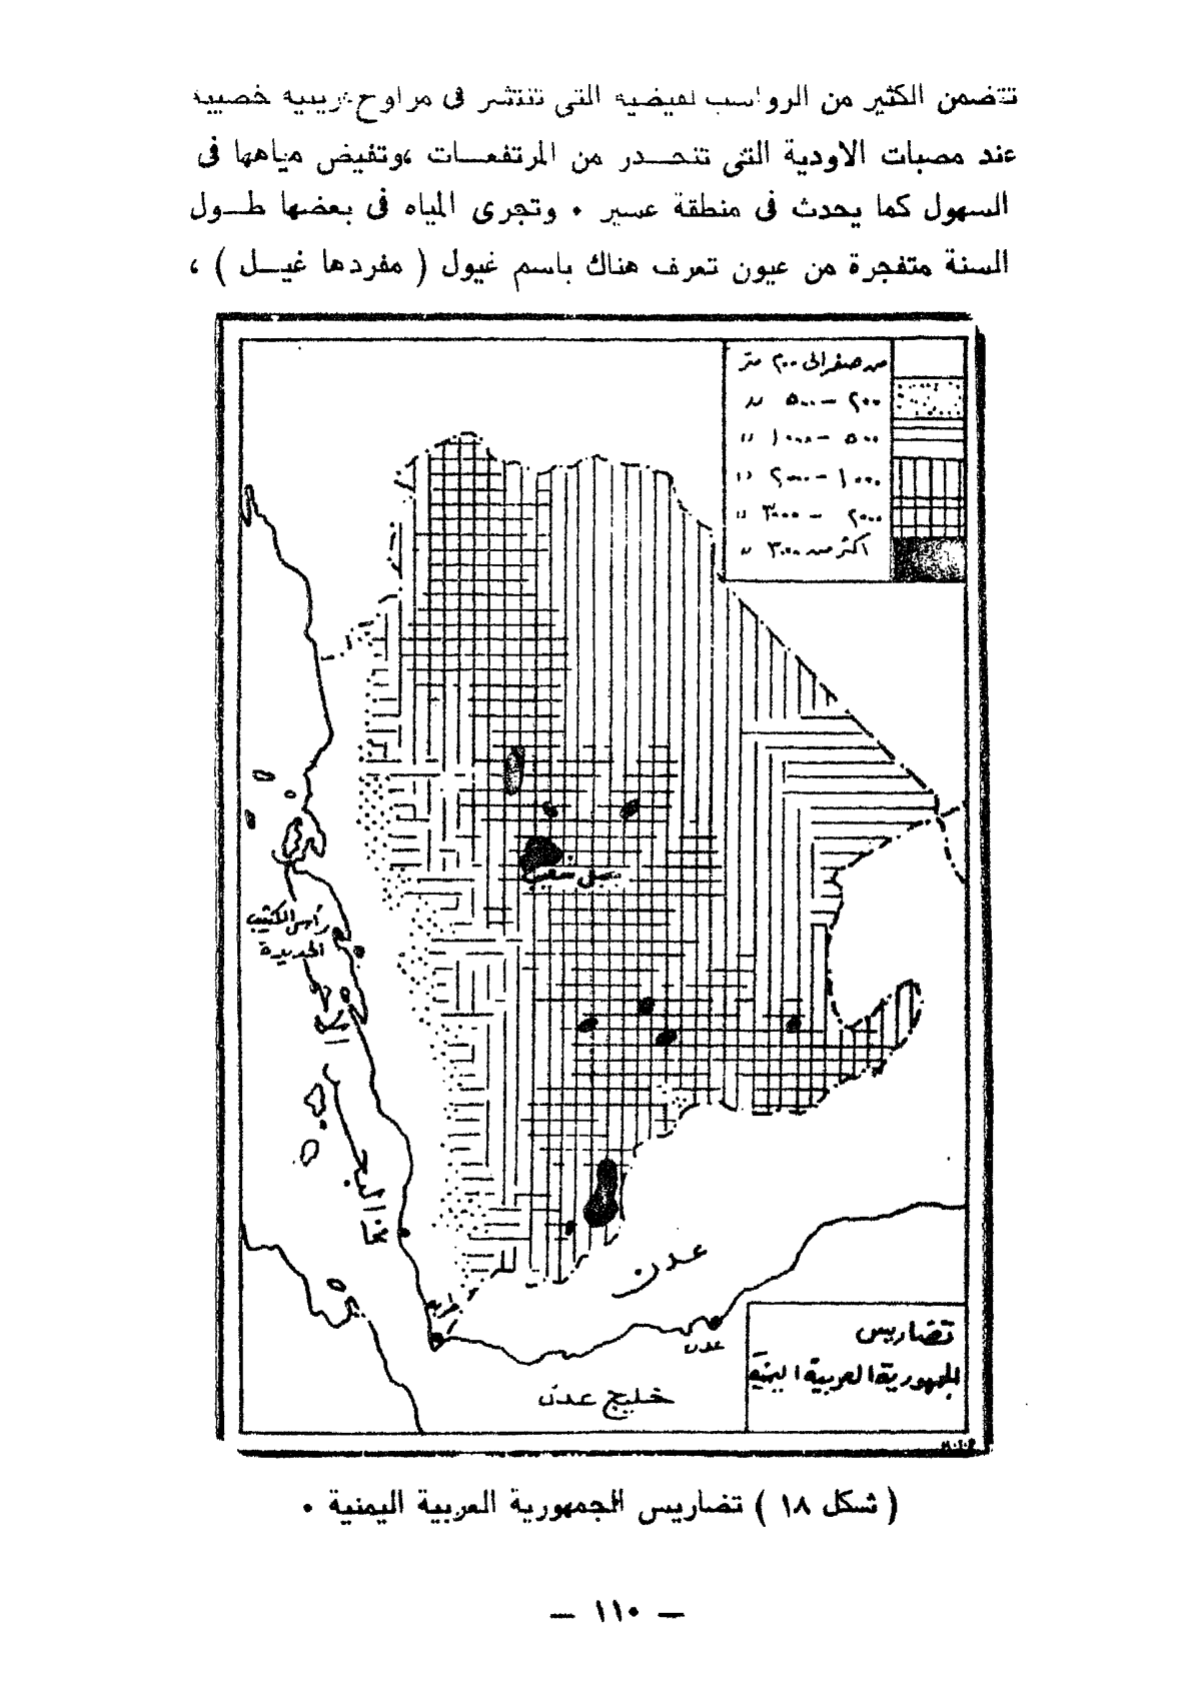 تتضمن الكثير من الرواسب الفيضية التى تنتشر فى مراوح غرينية خصيبة
عند مصبات الاودية التى تنحدر من المرتفعات ،وتفيض مياهها فى
السهول كما يحدث فى منطقة عسير ٠ وتجرى المياه فى بعضها طول
السنة متفجرة من عيون تعرف هناك باسم غيول ( مفردها غيل ) ،
من صفر الى ٢٠٠ متر
٢٠٠ – ٥٠٠ "
٥٠٠ – ١٠٠٠ "
١٠٠٠ – ٢٠٠٠ "
٢٠٠٠ – ٣٠٠٠ "
اكثر من ٣٠٠٠ "
جبل شعيب
رأس الكثيب
الحديدة
البحر
عدن
عدن
خليج عدن
تضاريس
الجمهورية العربية اليمنية
( شكل ١٨ ) تضاريس الجمهورية العربية اليمنية ٠
— ١١٠ —